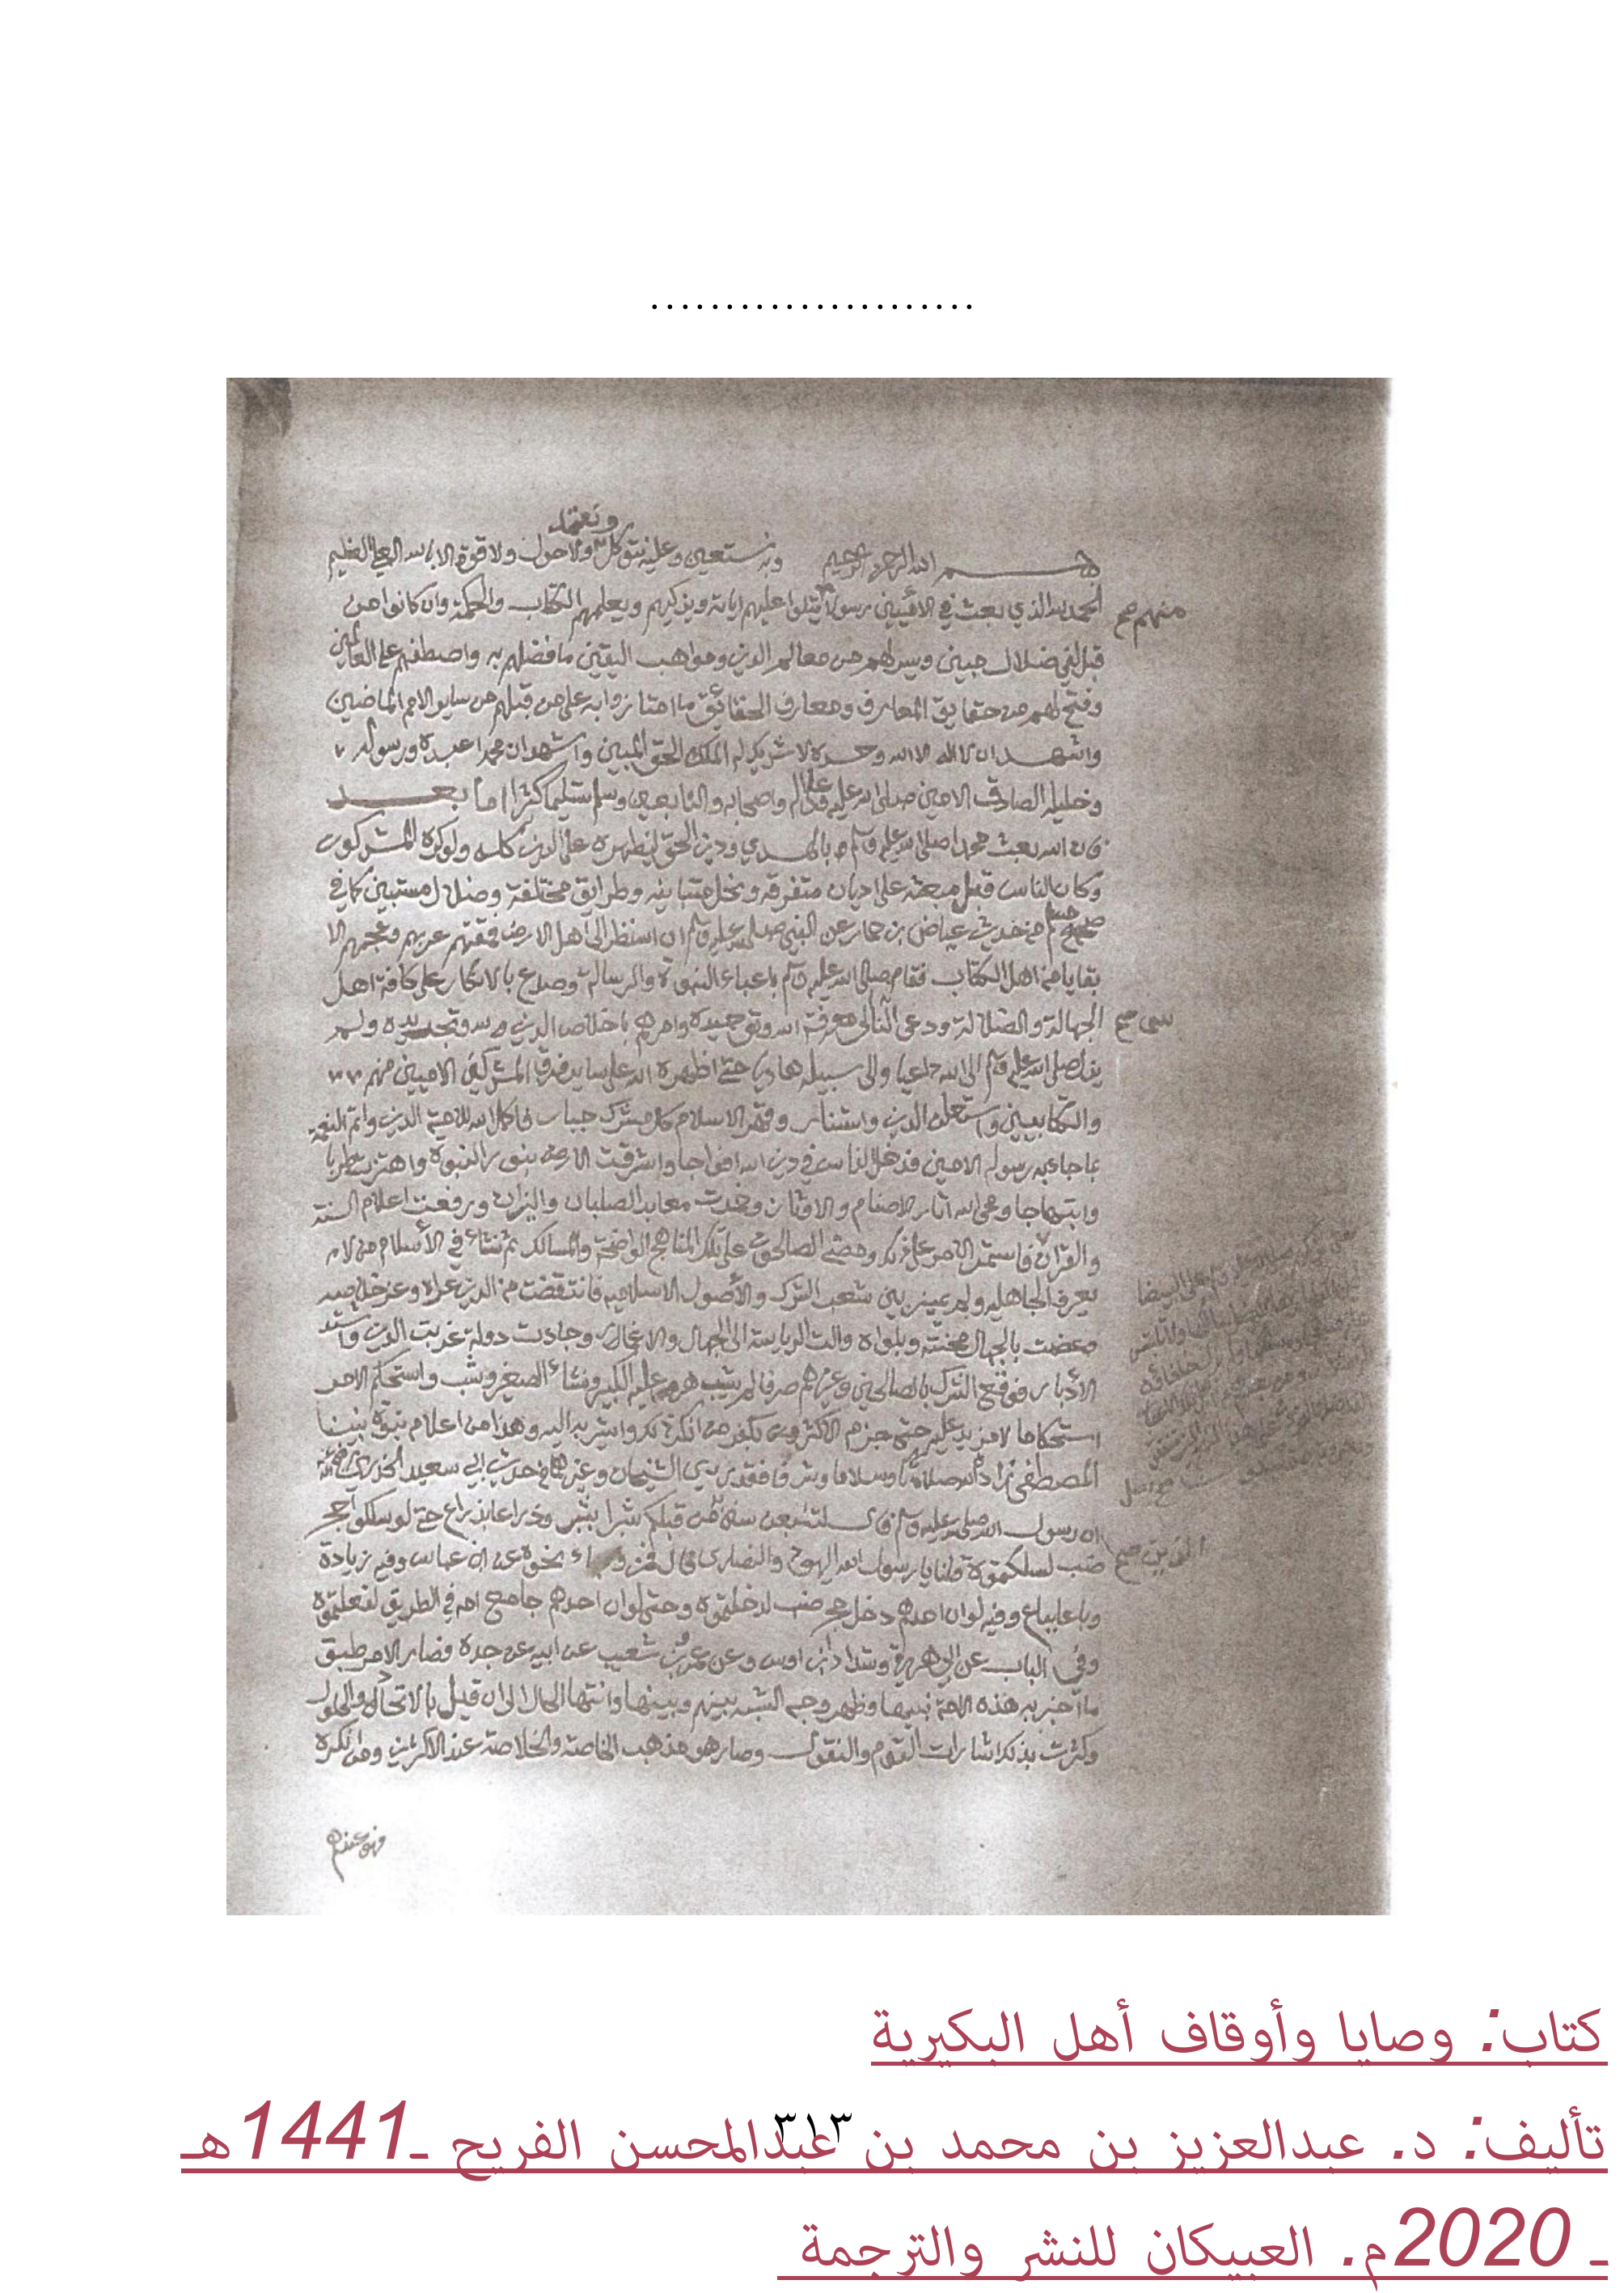 ......................
ونعتمد
بسم الله الرحمن الرحيم وبه نستعين وعليه نتوكل ولا حول ولا قوة الا بالله العلي العظيم
الحمد لله الذي بعث في الاميين رسولا يتلوا عليهم اياته ويزكيهم ويعلمهم الكتاب والحكمة وان كانوا من
منهم صح
قبل لفي ضلال مبين ويسر لهم من معالم الدين ومواهب اليقين ما فضلهم به واصطفهم على العالمين
وفتح لهم من حقايق المعارف ومعارف الحقائق ما امتازوا به على من قبلهم من ساير الامم الماضين
واشهد ان لا اله الا الله وحده لا شريك له الملك الحق المبين واشهد ان محمدا عبده ورسوله
وخليله الصادق الامين صلى الله عليه وعلى اله واصحابه والتابعين وسلم تسليما كثيرا اما بعد
فان الله بعث محمدا صلى الله عليه وسلم بالهدي ودين الحق ليظهره على الدين كله ولو كره المشركون
وكان الناس قبل مبعثه على اديان متفرقه ونحل متباينه وطرايق مختلفة وضلال مستبين كما في
صحيح مسلم من حديث عياض بن حمار عن النبي صلى الله عليه وسلم ان الله نظر الى اهل الارض فمقتهم عربهم وعجمهم الا
بقايا من اهل الكتاب فقام صلى الله عليه وسلم باعباء النبوة والرسالة وصدع بالانكار على كافة اهل
الجهالة والضلالة ودعى النا الى معرفة الله وتوحيده وامرهم باخلاص الدين لله وتجديده ولم
س صح
يزل صلى الله عليه وسلم الى الله داعيا والى سبيله هاديا حتى اظهره الله على ساير فرق المشركين الاميين منهم
والكتابيين واستعلن الدين واستنار وقهر الاسلام كل مشرك جبار فاكمل الله للامة الدين واتم النعمة
بما جاء به رسوله الامين فدخل الناس في دين الله افواجا واشرقت الارض بنور النبوة واهتزت طربا
وابتهاجا ومحى الله اثار الاصنام والاوثان وخدت معابد الصلبان والنيران ورفعت اعلام السنة
والقران فاستمر الامر على ذلك ومضى الصالحون على تلك المناهج الواضحة والمسالك ثم نشاء في الأسلام من لام
يعرف الجاهليه ولم يميز بين شعب الشرك والأصول الاسلاميه فانتقضت من الدين عراه وعز خلاصه
وعضمت بالجهال محنته وبلواه والت الرياسة الى الجهال والاغمار وجاءت دولة غربت الدين واشتد
الأدبار فوقع الشرك بالصالحين وغيرهم هرم عليه الكبير ونشاء الصغير وشب واستحكم الامر
استحكاما لا مزيد عليه حتى جزم الاكثرون بكفر من انكر ذلك واشير به اليه وهذا من اعلام نبوة نبينا
المصطفى زاده الله صلاة وسلاما وشرفا فقد روي الشيخان وغيرهما في حديث ابي سعيد الخدري رضي الله عنه
ان رسول الله صلى الله عليه وسلم قال لتتبعن سنن من قبلكم شبرا بشبر وذراعا بذراع حتى لو سلكوا جحر
ضب لسلكتموه قلنا يا رسول الله اليهود والنصارى قال فمن نحوه عن ابن عباس وفيه زيادة
الذين صح
وباعا بباع وفيه لو ان احدهم دخل جحر ضب لدخلتموه وحتى لو ان احدهم جامع امه في الطريق لفعلتموه
وفي الباب عن ابي هريرة وشداد ابن اوس وعن عمرو بن شعيب عن ابيه عن جده فصار الامر طبق
ما اخبر به هذه الامة نبيها وظهر وجه الشبه بينهم وبينها وانتها الحال الى ان قيل بالاتحاد والحلول
وكثرت بذلك اشارات القوم والنقول وصار هو مذهب الخاصة والخلاصة عند الاكثرين ومن انكره
فهو عندهم
كتاب: وصايا وأوقاف أهل البكيرية
تأليف: د. عبدالعزيز بن محمد بن عبدالمحسن الفريح ـ1441هـ
٣١٣
ـ 2020م. العبيكان للنشر والترجمة